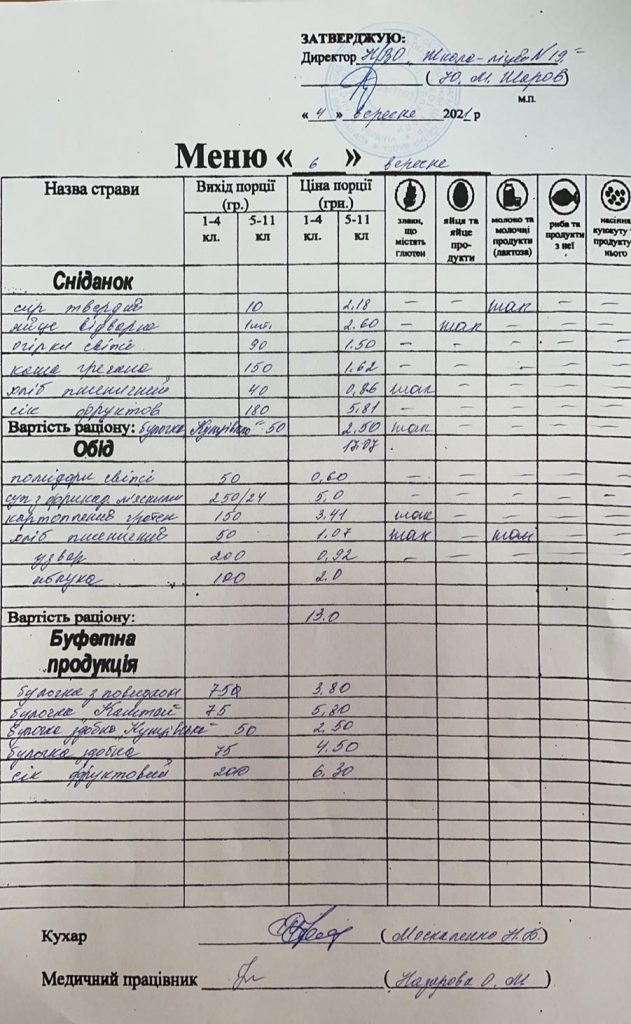 ЗАТВЕРДЖУЮ:
Директор НЗО „Школа-ліцей №19"
(Ю. М. Шаров)
м.п.
« 4 » вересне 2021 р
Меню « 6 » вересне
Назва страви Вихід порції (гр.) Ціна порції (грн.) злаки, що містять глютен яйця та яйце продукти молоко та молочні продукти (лактоза) риба та продукти з неї насіння кунжуту т продукту нього
1-4 кл. 5-11 кл 1-4 кл. 5-11 кл.
Сніданок
сир твердий 10 2.18 – – так – –
яйце відварне 1шт. 2.60 – так – – –
огірки свіжі 90 1.50 – – – – –
каша гречана 150 1.62 – – – – –
хліб пшеничний 40 0,86 так – – – –
сік фруктов 180 5,81 – – – – –
Вартість раціону: булочка 50 2.50 так – – – –
Обід 17.07
помідори свіжі 50 0,60 – – – – –
суп з фрикад. мясними 250/24 5,0 – – – – –
картопляний 150 3.41 так – – – –
хліб пшеничний 50 1.07 так – так – –
узвар 200 0,92 – – – – –
яблука 100 2.0
Вартість раціону: 13.0
Буфетна продукція
булочка з повидлом 750 3.80
булочка 75 5,80
булочка здобна 50 2.50
булочка здобна 75 4.50
сік фруктовий 200 6.30
Кухар (Москаленко Н.В.)
Медичний працівник (Назарова О. М)